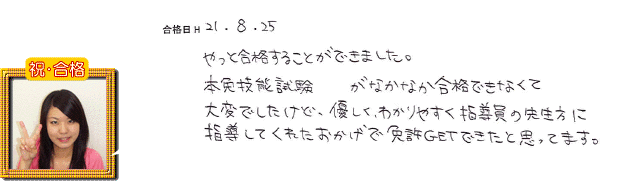 合格日 H 21.8.25
祝・合格
やっと合格することができました。
本免技能試験 がなかなか合格できなくて
大変でしたけど、優しく、わかりやすく指導員の先生方に
指導してくれたおかげで免許GETできたと思ってます。